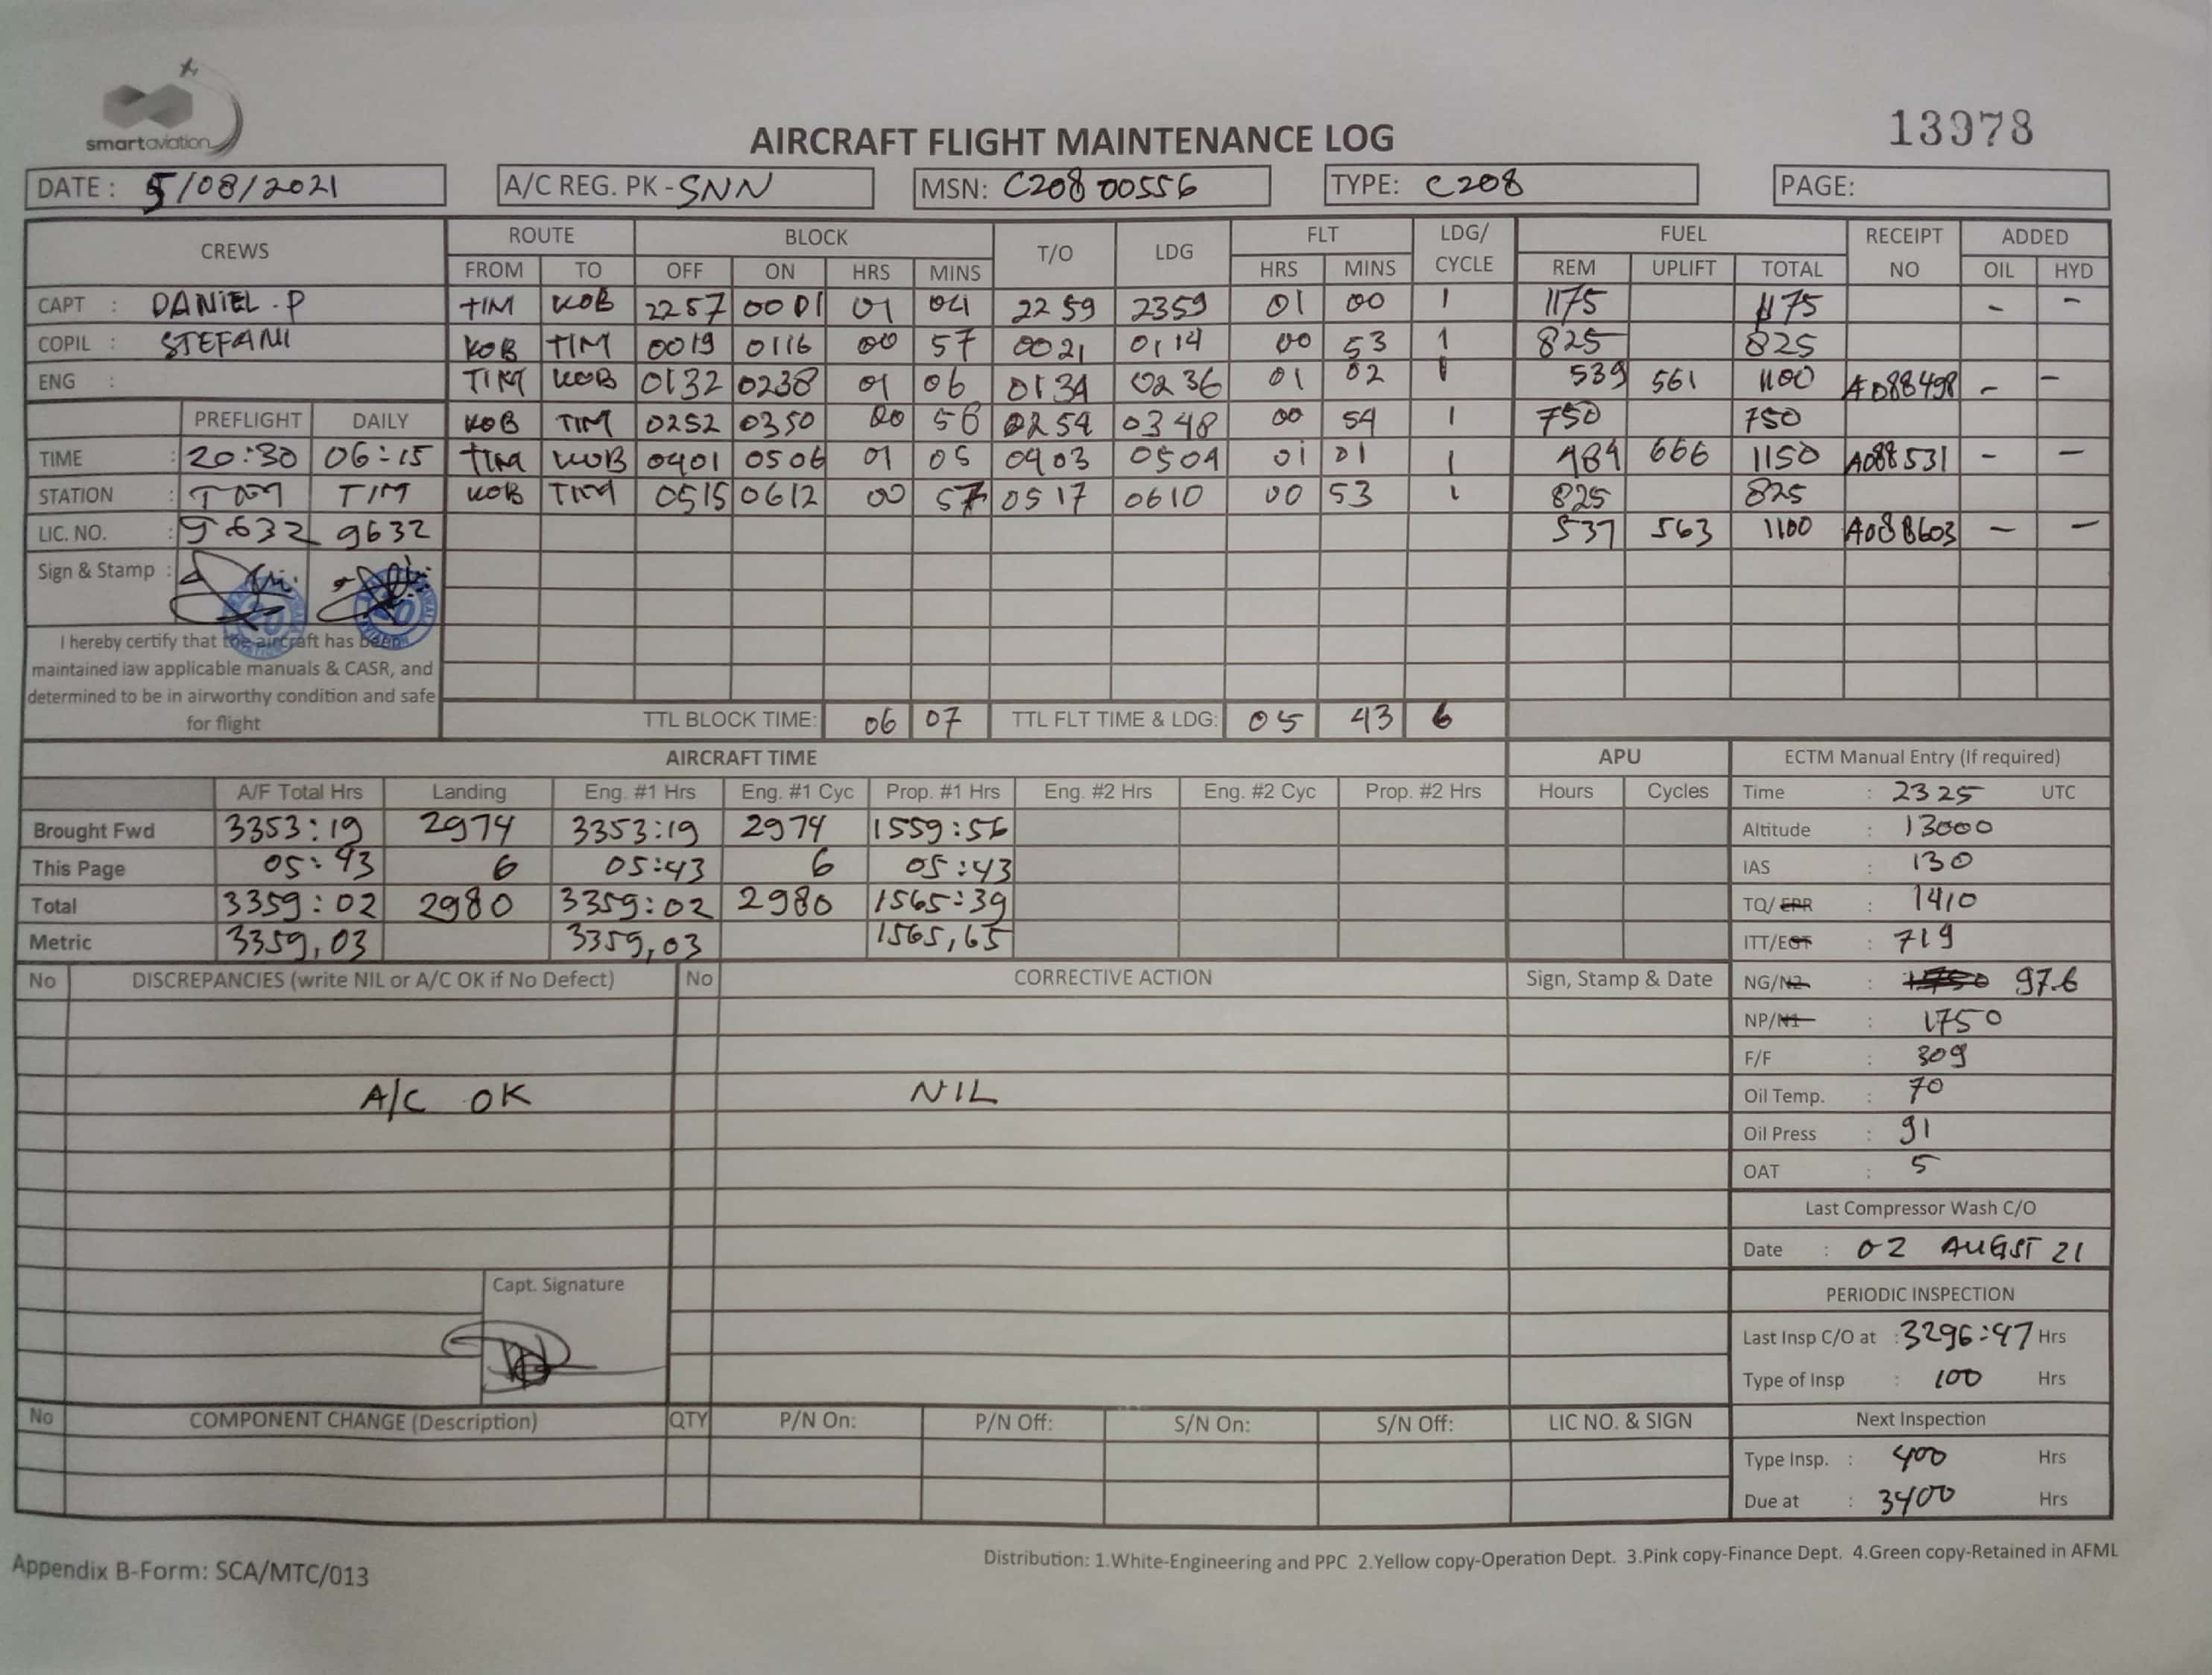 smartaviation
13978
AIRCRAFT FLIGHT MAINTENANCE LOG
DATE : 5/08/2021 A/C REG. PK - SNN MSN: C20800556 TYPE: C208 PAGE:
CREWS ROUTE BLOCK T/O LDG FLT LDG/ CYCLE FUEL RECEIPT NO ADDED
FROM TO OFF ON HRS MINS HRS MINS REM UPLIFT TOTAL OIL HYD
CAPT : DANIEL.P TIM KOB 2257 0001 01 04 2259 2359 01 00 1 1175 1175 - -
COPIL : STEFANI KOB TIM 0019 0116 00 57 0021 0114 00 53 1 825 825
ENG : TIM KOB 0132 0238 01 06 0134 0236 01 02 1 539 561 1100 A088498 - -
PREFLIGHT DAILY KOB TIM 0252 0350 00 58 0254 0348 00 54 1 750 750
TIME : 20:30 06:15 TIM KOB 0401 0506 01 05 0403 0504 01 01 1 484 666 1150 A088531 - -
STATION : TIM TIM KOB TIM 0515 0612 00 57 0517 0610 00 53 1 825 825
LIC. NO. : 9632 9632 537 563 1100 A088603 - -
Sign & Stamp :
I hereby certify that the aircraft has been
maintained iaw applicable manuals & CASR, and
determined to be in airworthy condition and safe
for flight
TTL BLOCK TIME: 06 07 TTL FLT TIME & LDG: 05 43 6
AIRCRAFT TIME APU ECTM Manual Entry (If required)
A/F Total Hrs Landing Eng. #1 Hrs Eng. #1 Cyc Prop. #1 Hrs Eng. #2 Hrs Eng. #2 Cyc Prop. #2 Hrs Hours Cycles Time : 2325 UTC
Brought Fwd 3353:19 2974 3353:19 2974 1559:56 Altitude : 13000
This Page 05:43 6 05:43 6 05:43 IAS : 130
Total 3359:02 2980 3359:02 2980 1565:39 TQ/EPR : 1410
Metric 3359,03 3359,03 1565,65 ITT/EGT : 719
No DISCREPANCIES (write NIL or A/C OK if No Defect) No CORRECTIVE ACTION Sign, Stamp & Date NG/N2 : 1750 97.6
NP/N1 : 1750
F/F : 309
A/C OK NIL Oil Temp. : 70
Oil Press : 91
OAT : 5
Last Compressor Wash C/O
Date : 02 AUGST 21
Capt. Signature
PERIODIC INSPECTION
Last Insp C/O at : 3296:47 Hrs
Type of Insp : 100 Hrs
No COMPONENT CHANGE (Description) QTY P/N On: P/N Off: S/N On: S/N Off: LIC NO. & SIGN Next Inspection
Type Insp. : 400 Hrs
Due at : 3400 Hrs
Appendix B-Form: SCA/MTC/013
Distribution: 1.White-Engineering and PPC 2.Yellow copy-Operation Dept. 3.Pink copy-Finance Dept. 4.Green copy-Retained in AFML